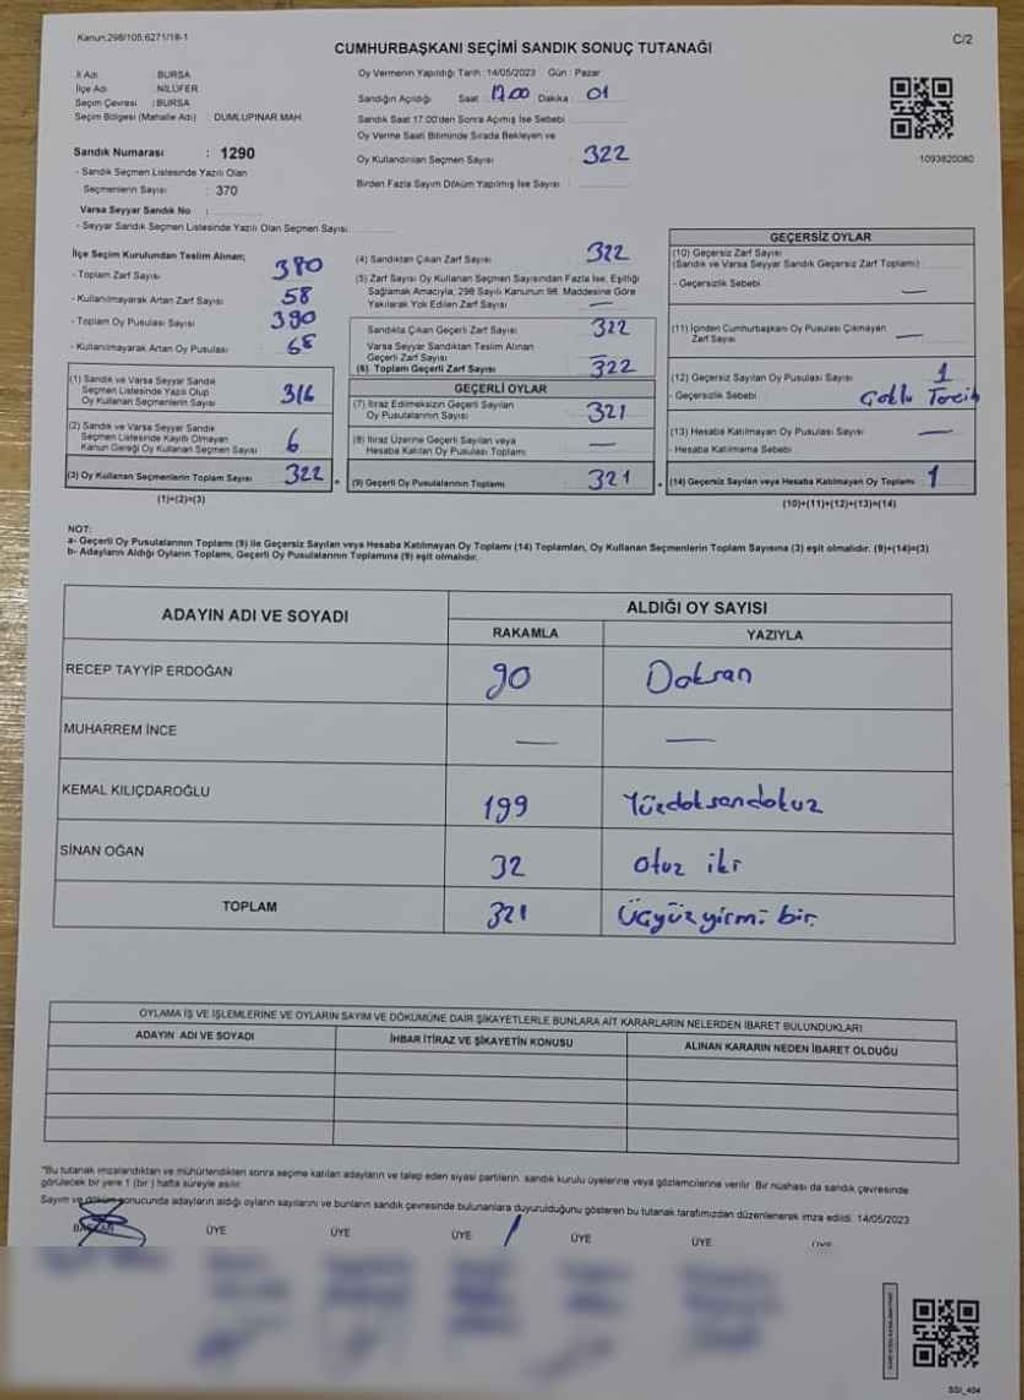 Kanun:298/105;6271/18-1
C/2
CUMHURBAŞKANI SEÇİMİ SANDIK SONUÇ TUTANAĞI
İl Adı : BURSA
İlçe Adı : NİLÜFER
Seçim Çevresi : BURSA
Seçim Bölgesi (Mahalle Adı) DUMLUPINAR MAH.
Oy Vermenin Yapıldığı Tarih : 14/05/2023 Gün : Pazar
Sandığın Açıldığı Saat : 17.00 Dakika : 01
Sandık Saat 17:00'den Sonra Açılmış İse Sebebi
Oy Verme Saati Bitiminde Sırada Bekleyen ve
Oy Kullandırılan Seçmen Sayısı : 322
Birden Fazla Sayım Döküm Yapılmış İse Sayısı :
1093820080
Sandık Numarası : 1290
- Sandık Seçmen Listesinde Yazılı Olan
Seçmenlerin Sayısı : 370
Varsa Seyyar Sandık No :
- Seyyar Sandık Seçmen Listesinde Yazılı Olan Seçmen Sayısı
İlçe Seçim Kurulundan Teslim Alınan;
- Toplam Zarf Sayısı 380
- Kullanılmayarak Artan Zarf Sayısı 58
- Toplam Oy Pusulası Sayısı 390
- Kullanılmayarak Artan Oy Pusulası 68
(1) Sandık ve Varsa Seyyar Sandık
Seçmen Listesinde Yazılı Olup
Oy Kullanan Seçmenlerin Sayısı 316
(2) Sandık ve Varsa Seyyar Sandık
Seçmen Listesinde Kayıtlı Olmayan
Kanun Gereği Oy Kullanan Seçmen Sayısı 6
(3) Oy Kullanan Seçmenlerin Toplam Sayısı 322
(1)+(2)=(3)
(4) Sandıktan Çıkan Zarf Sayısı 322
(5) Zarf Sayısı Oy Kullanan Seçmen Sayısından Fazla İse, Eşitliği
Sağlamak Amacıyla, 298 Sayılı Kanunun 98. Maddesine Göre
Yakılarak Yok Edilen Zarf Sayısı —
Sandıkta Çıkan Geçerli Zarf Sayısı 322
Varsa Seyyar Sandıktan Teslim Alınan
Geçerli Zarf Sayısı —
(6) Toplam Geçerli Zarf Sayısı 322
GEÇERLİ OYLAR
(7) İtiraz Edilmeksizin Geçerli Sayılan
Oy Pusulalarının Sayısı 321
(8) İtiraz Üzerine Geçerli Sayılan veya
Hesaba Katılan Oy Pusulası Toplamı —
(9) Geçerli Oy Pusulalarının Toplamı 321
GEÇERSİZ OYLAR
(10) Geçersiz Zarf Sayısı
(Sandık ve Varsa Seyyar Sandık Geçersiz Zarf Toplamı)
- Geçersizlik Sebebi —
(11) İçinden Cumhurbaşkanı Oy Pusulası Çıkmayan
Zarf Sayısı —
(12) Geçersiz Sayılan Oy Pusulası Sayısı 1
- Geçersizlik Sebebi Çoklu Tercih
(13) Hesaba Katılmayan Oy Pusulası Sayısı —
- Hesaba Katılmama Sebebi
(14) Geçersiz Sayılan veya Hesaba Katılmayan Oy Toplamı 1
(10)+(11)+(12)+(13)=(14)
NOT:
a- Geçerli Oy Pusulalarının Toplamı (9) ile Geçersiz Sayılan veya Hesaba Katılmayan Oy Toplamı (14) Toplamları, Oy Kullanan Seçmenlerin Toplam Sayısına (3) eşit olmalıdır. (9)+(14)=(3)
b- Adayların Aldığı Oyların Toplamı, Geçerli Oy Pusulalarının Toplamına (9) eşit olmalıdır.
ADAYIN ADI VE SOYADI ALDIĞI OY SAYISI
RAKAMLA YAZIYLA
RECEP TAYYİP ERDOĞAN 90 Doksan
MUHARREM İNCE — —
KEMAL KILIÇDAROĞLU 199 Yüzdoksandokuz
SİNAN OĞAN 32 otuz iki
TOPLAM 321 Üçyüzyirmi bir.
OYLAMA İŞ VE İŞLEMLERİNE VE OYLARIN SAYIM VE DÖKÜMÜNE DAİR ŞİKAYETLERLE BUNLARA AİT KARARLARIN NELERDEN İBARET BULUNDUKLARI
ADAYIN ADI VE SOYADI İHBAR İTİRAZ VE ŞİKAYETİN KONUSU ALINAN KARARIN NEDEN İBARET OLDUĞU
"Bu tutanak imzalandıktan ve mühürlendikten sonra seçime katılan adayların ve talep eden siyasi partilerin, sandık kurulu üyelerine veya gözlemcilerine verilir. Bir nüshası da sandık çevresinde
görülecek bir yere 1 (bir) hafta süreyle asılır.
Sayım ve döküm sonucunda adayların aldığı oyların sayılarını ve bunların sandık çevresinde bulunanlara duyurulduğunu gösteren bu tutanak tarafımızdan düzenlenerek imza edildi. 14/05/2023
BAŞKAN ÜYE ÜYE ÜYE ÜYE ÜYE ÜYE
SSI_404